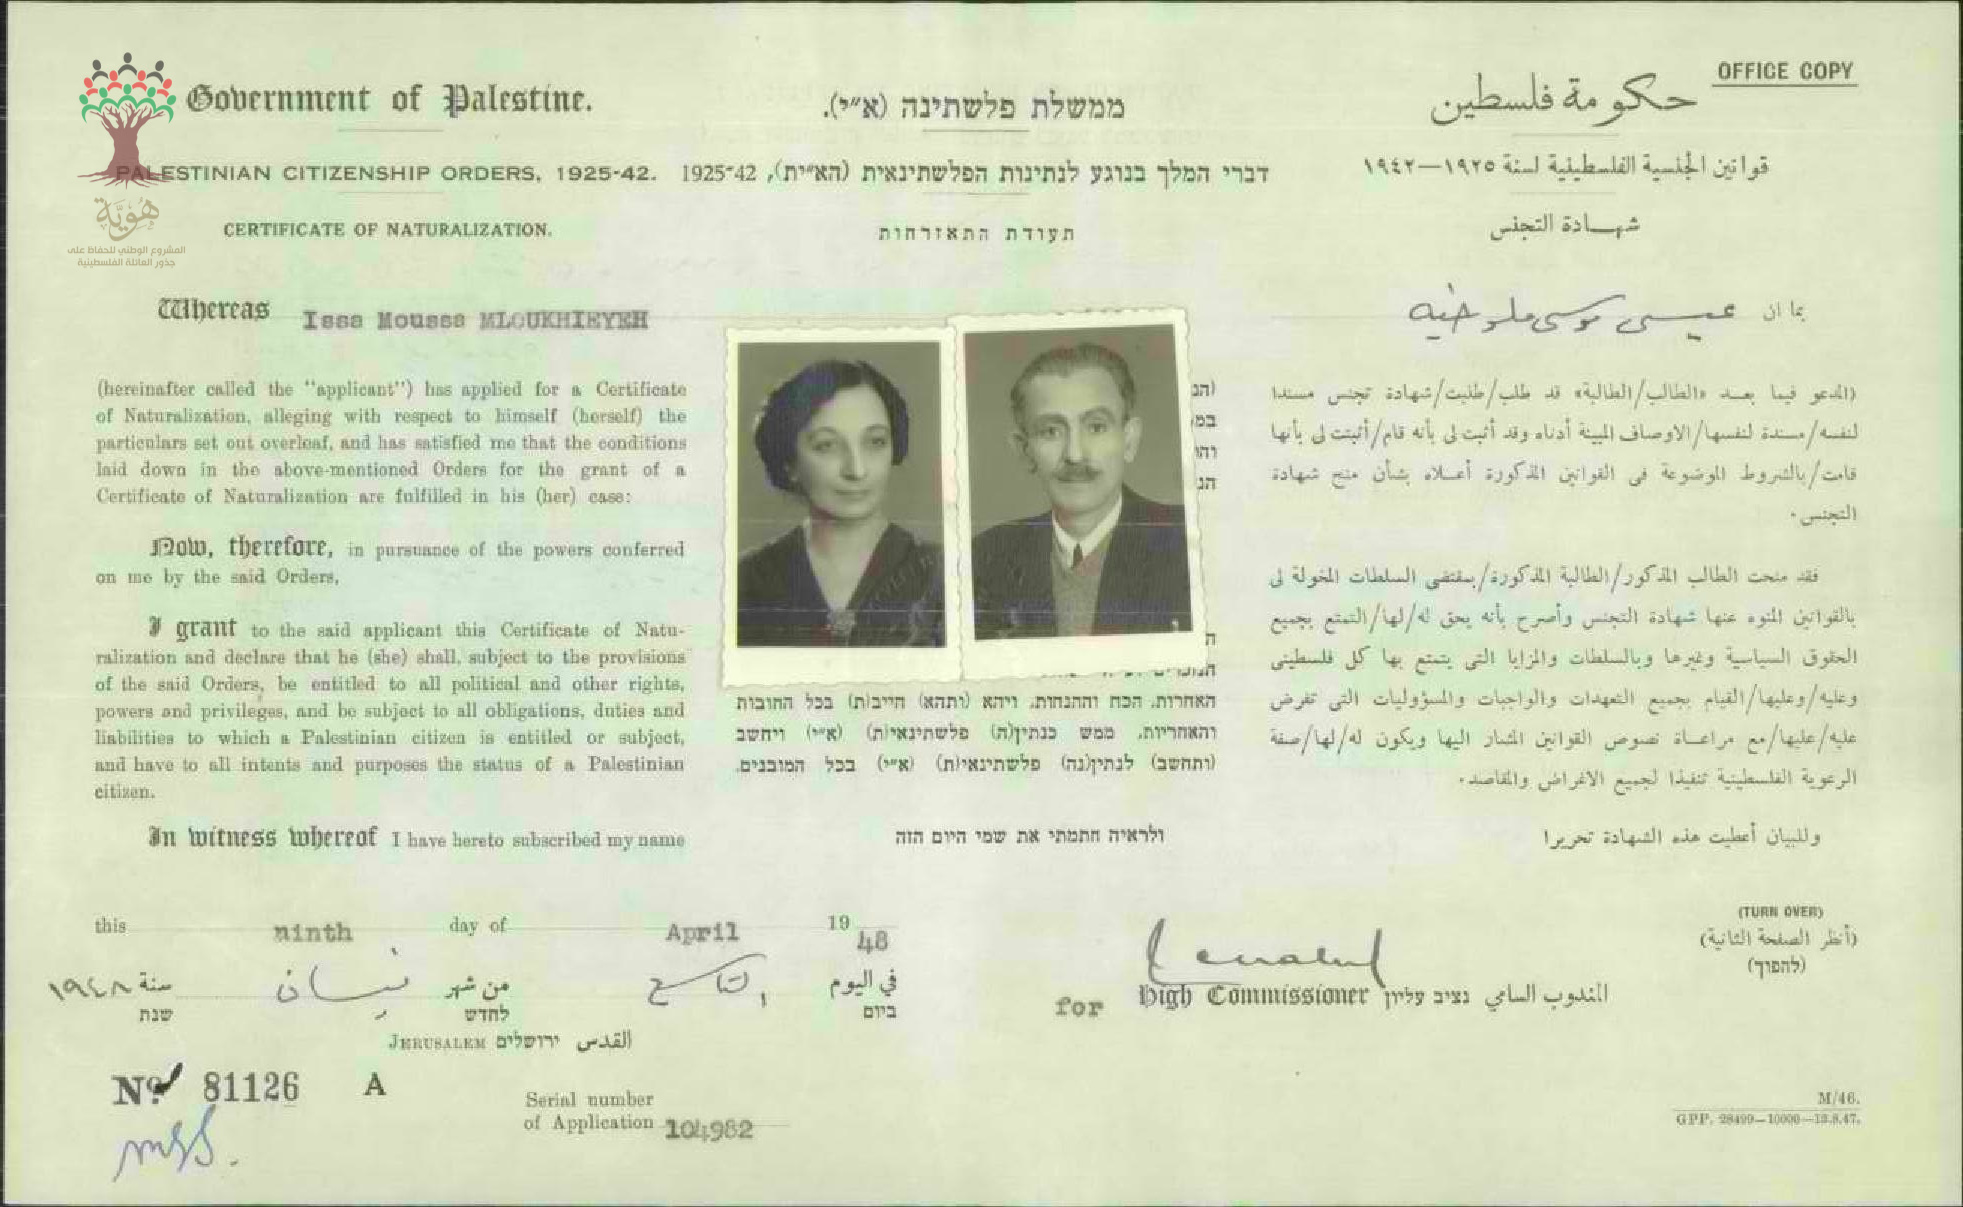 OFFICE COPY
Government of Palestine.
PALESTINIAN CITIZENSHIP ORDERS, 1925-42.
CERTIFICATE OF NATURALIZATION.
هُوِيَّة
المشروع الوطني للحفاظ على
جذور العائلة الفلسطينية
Whereas Issa Moussa MLOUKHIEYEH
(hereinafter called the "applicant") has applied for a Certificate
of Naturalization, alleging with respect to himself (herself) the
particulars set out overleaf, and has satisfied me that the conditions
laid down in the above-mentioned Orders for the grant of a
Certificate of Naturalization are fulfilled in his (her) case:
Now, therefore, in pursuance of the powers conferred
on me by the said Orders,
I grant to the said applicant this Certificate of Natu-
ralization and declare that he (she) shall, subject to the provisions
of the said Orders, be entitled to all political and other rights,
powers and privileges, and be subject to all obligations, duties and
liabilities to which a Palestinian citizen is entitled or subject,
and have to all intents and purposes the status of a Palestinian
citizen.
In witness whereof I have hereto subscribed my name
ממשלת פלשתינה (א״י).
דברי המלך בנוגע לנתינות הפלשתינאית (הא״ית), 1925-42
תעודת התאזרחות
האחרות, הכח וההנחות, ויהא (ותהא) חייב(ת) בכל החובות
והאחריות, ממש כנתין(ה) פלשתינאי(ת) (א״י) ויחשב
(ותחשב) לנתין(נה) פלשתינאי(ת) (א״י) בכל המובנים.
ולראיה חתמתי את שמי היום הזה
حكومة فلسطين
قوانين الجنسية الفلسطينية لسنة ١٩٢٥—١٩٤٢
شهادة التجنس
بما ان عيسى موسى ملوخيه
(المدعو فيما بعد «الطالب/الطالبة» قد طلب/طلبت/شهادة تجنس مسندا
لنفسه/مسندة لنفسها/الاوصاف المبينة أدناه وقد أثبت لى بأنه قام/أثبتت لى بأنها
قامت/بالشروط الموضوعة فى القوانين المذكورة أعلاه بشأن منح شهادة
التجنس.
فقد منحت الطالب المذكور/الطالبة المذكورة/بمقتضى السلطات المخولة لى
بالقوانين المنوه عنها شهادة التجنس وأصرح بأنه يحق له/لها/التمتع بجميع
الحقوق السياسية وغيرها وبالسلطات والمزايا التى يتمتع بها كل فلسطينى
وعليه/وعليها/القيام بجميع التعهدات والواجبات والمسؤوليات التى تفرض
عليه/عليها/مع مراعاة نصوص القوانين المشار اليها ويكون له/لها/صفة
الرعوية الفلسطينية تنفيذا لجميع الاغراض والمقاصد.
وللبيان أعطيت هذه الشهادة تحريرا
this ninth day of April 1948
في اليوم التاسع من شهر نيسان سنة ١٩٤٨
ביום לחדש שנת
JERUSALEM ירושלים القدس
for High Commissioner נציב עליון المندوب السامي
(TURN OVER)
(أنظر الصفحة الثانية)
(להפוך)
No. 81126 A
Serial number
of Application 104982
M/46.
GPP. 28499—10000—13.8.47.